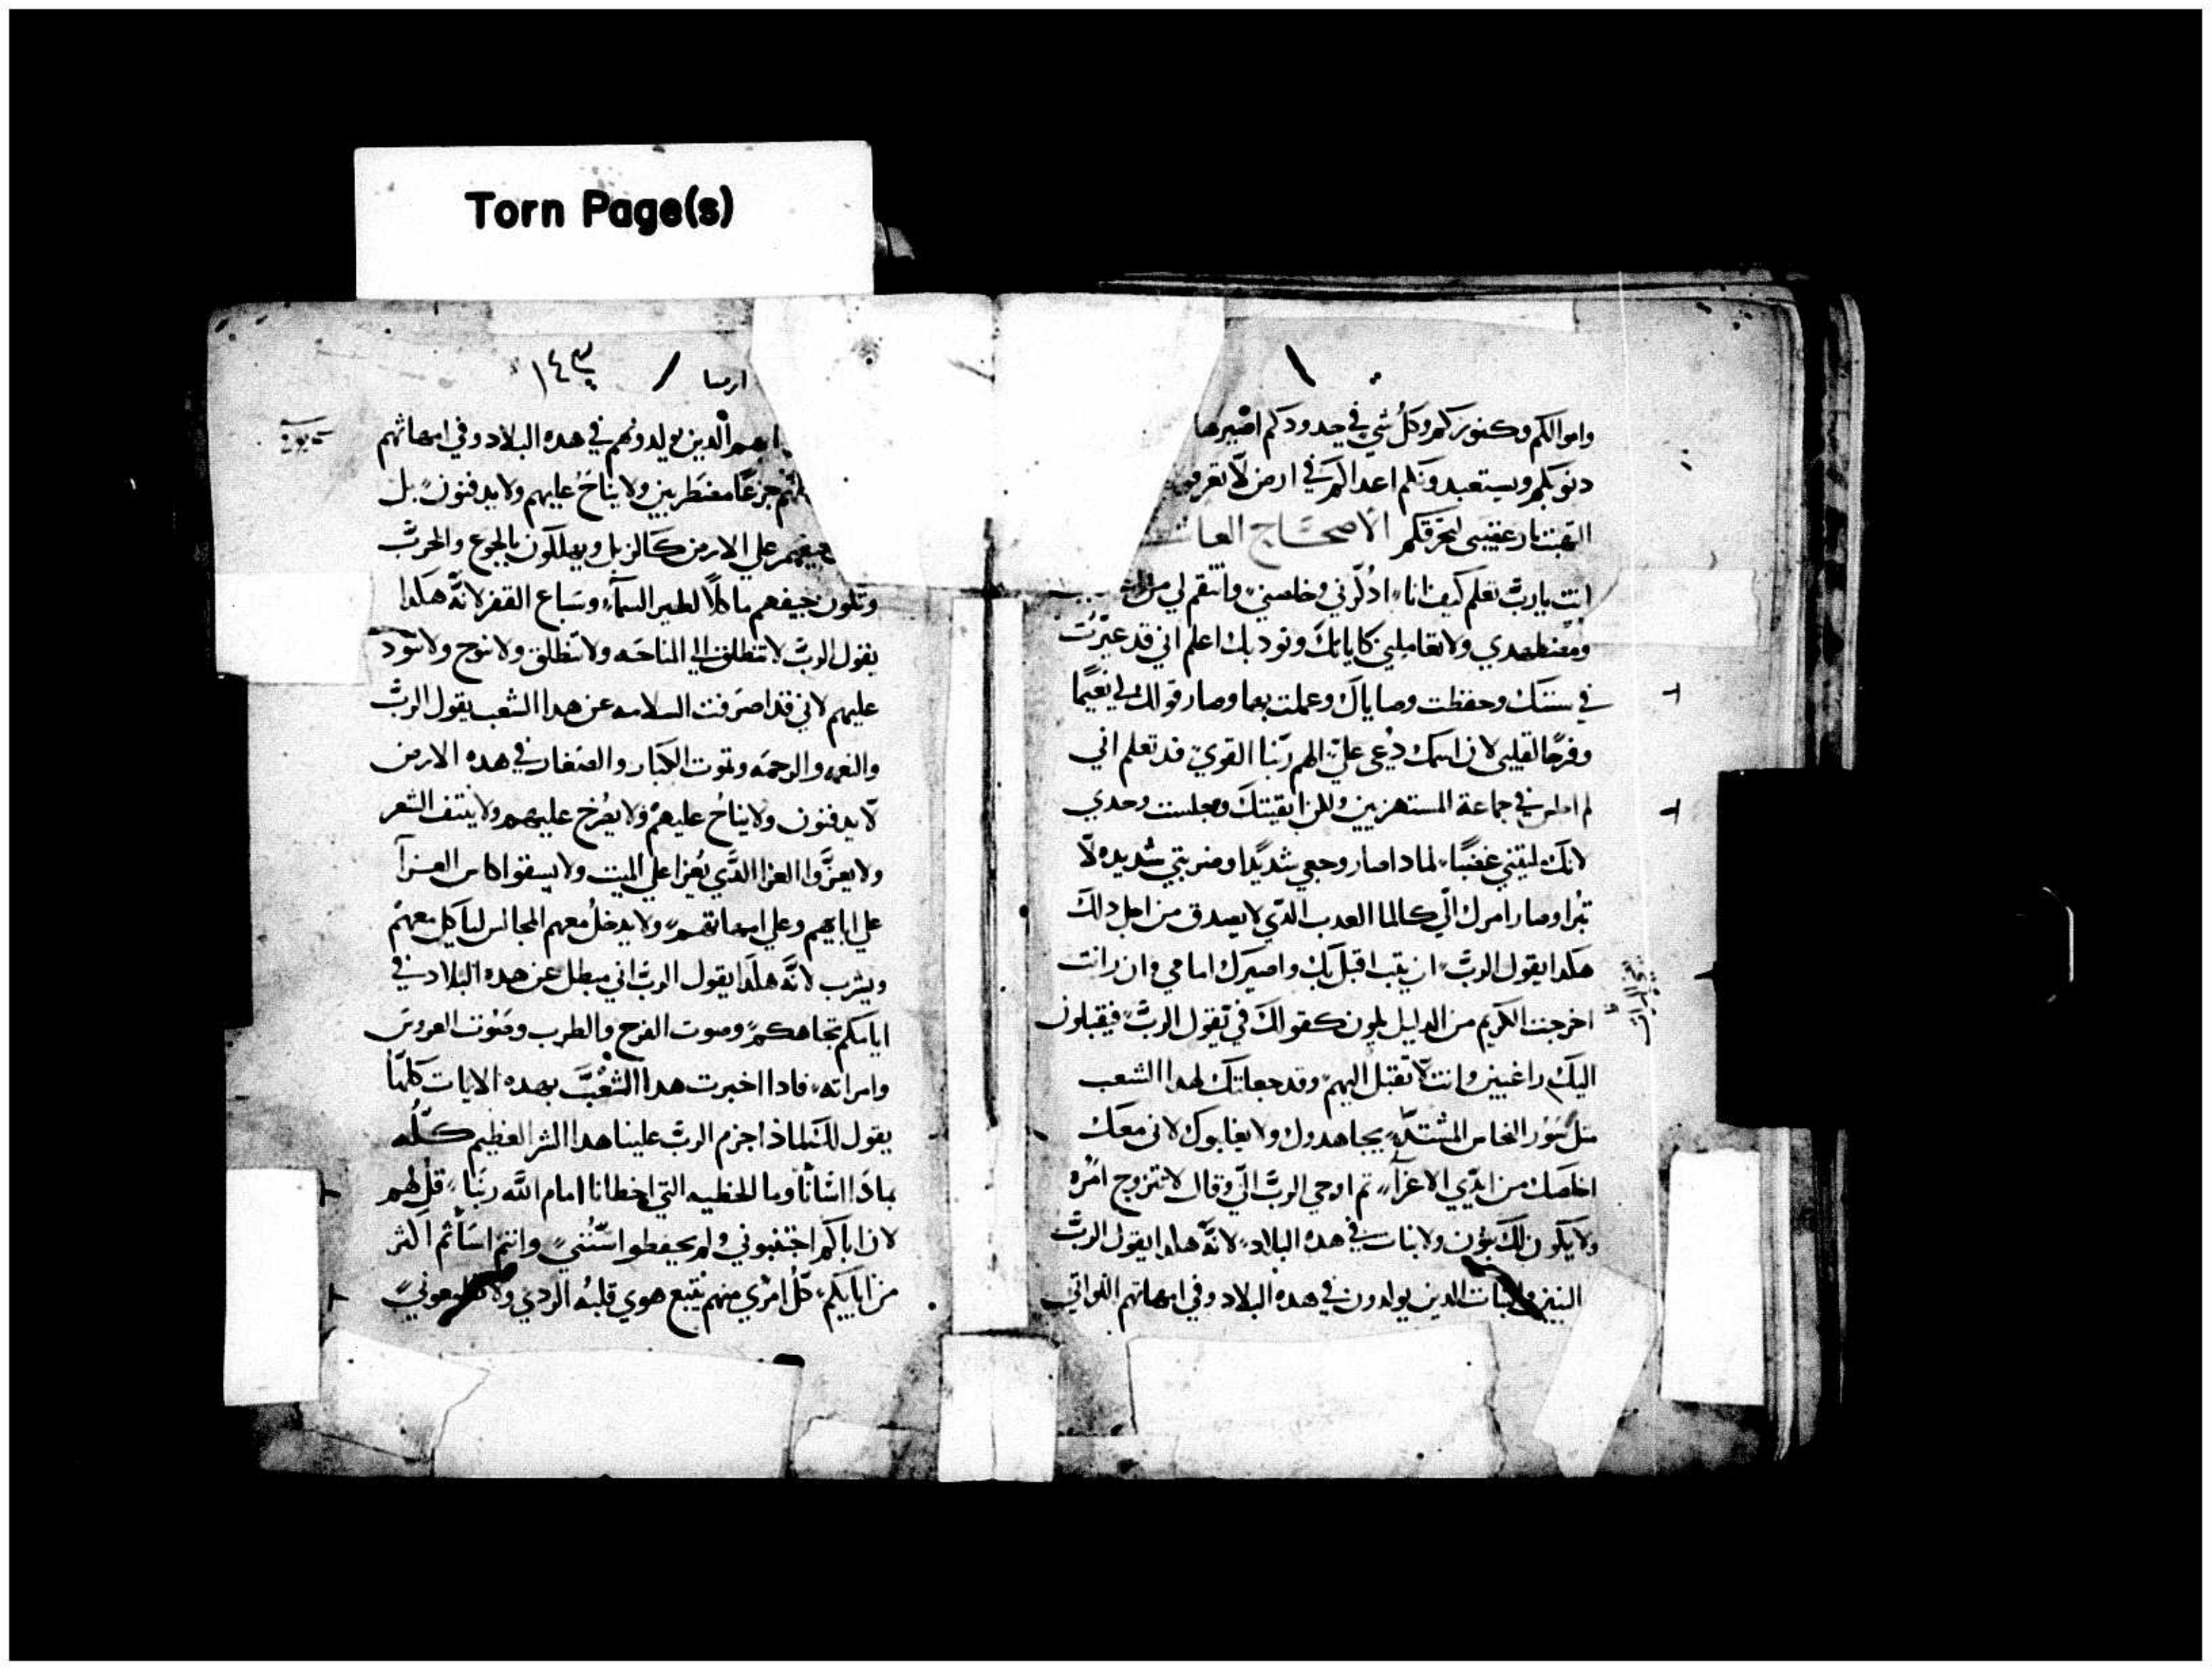 Torn Page(s)
واموالكم وكنوزكم وكل شي في حدودكم اصيرها
دنوبكم ويستعبدونكم اعداكم في ارض لا تعرفو
التهبت نار غضبي لتحرقكم الاصحاح العا
انت يارب تعلم كيف انا ادكرني وخلصني وانتقم لي من
ومضطهدي ولا تعاملني كاياتك وتودبك اعلم اني قد عيرت
في سنتك وحفظت وصاياك وعملت بها وصار قولك لي نعيما
وفرحا لقلبي لان اسمك دعي علي اللهم ربنا القوي قد تعلم اني
لم اجلس في جماعة المستهزيين ولكن اتقيتك وجلست وحدي
لانك ملتني غضبا لمادا صار وجعي شديدا وضربتي شديده لا
تبرا وصار امرك الي كالما العدب الدي لا يصدق من اجل دلك
هكدا يقول الرب ان تبت اقبل بك واصيرك امامي وان انت
اخرجت الكريم من الدليل تكون كقولك في تقول الرب فيقبلون
اليك راغبين وانت لا تقبل اليهم وقد جعلتك لهدا الشعب
متل سور النحاس المشتد يجاهدوك ولا يغلبوك لاني معك
اخلصك من ايدي الاعزآ تم اوحي الرب الي وقال لا تتزوج امره
ولا يكون لك بنون ولا بنات في هده البلاد لانه هكدا يقول الرب
البنين والبنات الدين يولدون في هده البلاد وفي امهاتهم اللواتي
ارميا / ١٤٣
ابهم الدين يولدونهم في هده البلاد وفي امهاتهم
جزعا مضطربين ولا يناح عليهم ولا يدفنون بل
جيفهم علي الارض كالزبل ويهلكون بالجوع والحرب
وتكون جيفهم ماكلا لطير السمآ وسباع القفر لانه هكدا
يقول الرب لا تنطلق الي المناحه ولا تنطلق ولا تنوح ولا تنود
عليهم لاني قد اصرفت السلامه عن هدا الشعب يقول الرب
والنعمه والرحمه وتموت الكبار والصغار في هده الارض
لا يدفنون ولا يناح عليهم ولا يفرخ عليهم ولا ينتف الشعر
ولا يعزوا العزا الدي يعزا علي الميت ولا يسقوا كاس العزآ
علي ابايهم وعلي امهاتهم ولا يدخل معهم المجالس لياكل معهم
ويشرب لانه هكدا يقول الرب اني مبطل عن هده البلاد في
ايامكم تجاهكم وصوت الفرح والطرب وصوت العروس
وامراته فادا اخبرت هدا الشعب بهده الايات كلها
يقول لك لماذا جزم الرب علينا هدا الشر العظيم كله
بمادا اسانا وما الخطيه التي اخطانا امام الله ربنا قل لهم
لان اباكم اجتنبوني ولم يحفطوا سنتي وانتم اساتم اكثر
من ابايكم كل امري منهم يتبع هوي قلبه الردي ولا